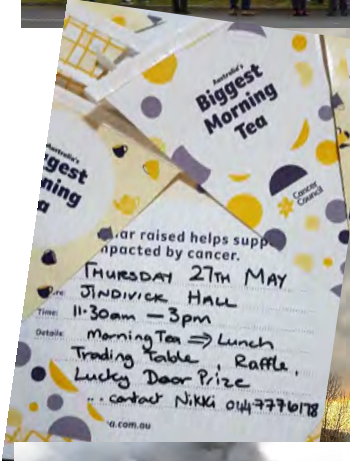 Australia's
Biggest
Morning
Tea
Cancer
Council
Australia's
gest
ning
a
ar raised helps supp
pacted by cancer.
THURSDAY 27TH MAY
re: JINDIVICK HALL
Time: 11.30am — 3pm
Details: Morning Tea ⇒ Lunch
Trading Table Raffle,
Lucky Door Prize
.. contact Nikki 0447776178
a.com.au